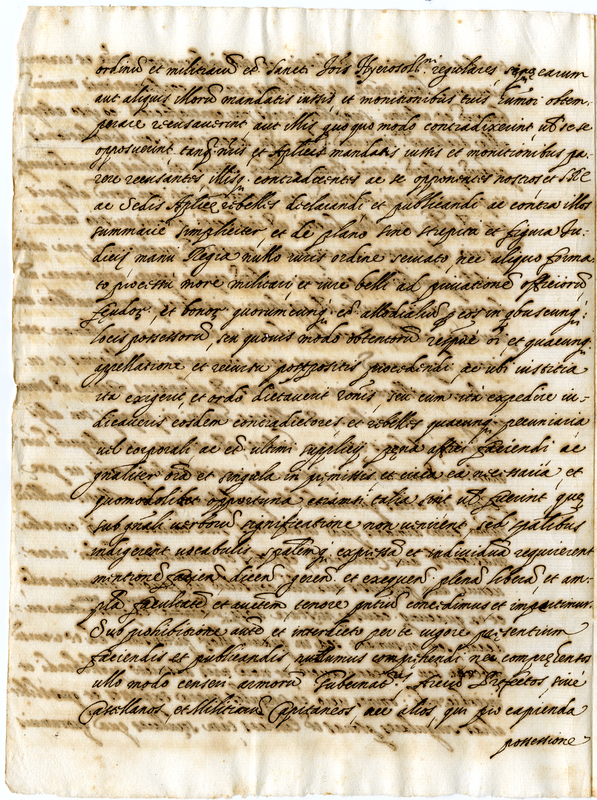 ordinū et militiarū et Sancti Jois Hyerosoll.ni regulares, seu earum
aut aliquis illorū mandatis iussis et monitionibus tuis humoi obtem-
perare recusaverint aut illis quoquo modo contradixerint, ut se se
opposuerint, tanq nris, et Aplicis mandatis iussis et monitionibus pa-
rere recusantes, illisq contradicentes ac se opponentes nostros et
ac Sedis Aplicę rebelles declarandi et publicandi ac contra illos
summarie simpliciter, et de plano sine strepitu et figura Ju-
dicij manu Regia nullo iuris ordine servato nec aliquo forma-
to processu more militari et iure belli ad privationē officiorū
feudor, et bonor quorumcunq et allodialiū per eos in qbuscunq
locis possessorū, seu quovis modo obtentorū et quacunq
appellatione et recursu postpositis procedendi, ac ubi iustitia
ita exigerit, et ordo dictaverit rōnis, seu cum ita expedire iu-
dicaveris eosdem contradictores et rebelles quacunq pecuniaria
vel corporali ac et ultimi supplicij pęna affici faciendi ac
gnaliter oīa et singula in pręmissis et circa ea necessaria, et
quomodolibet opportuna etiamsi talia sint ut fuerint quę
sub gnali verborū significatione non venirent, sed spālibus
indigerent vocabulis spālemq expressā et individuā requirerent
mentionē faciend dicend gerend et exequend plenā liberā et am-
plā facultatē et auctem, tenore pntiū concedimus et impartimur.
Sub prohibitione autē et interdicto per te vigore pręsentium
faciendis et publicandis, nolumus comprehendi nec comprehensos
ullo modo censeri armorū Gubernat Arciū Pręfectos, sive
Castellanos, et Militiarū Capitaneos, nec alios, qui pro capienda
possessione